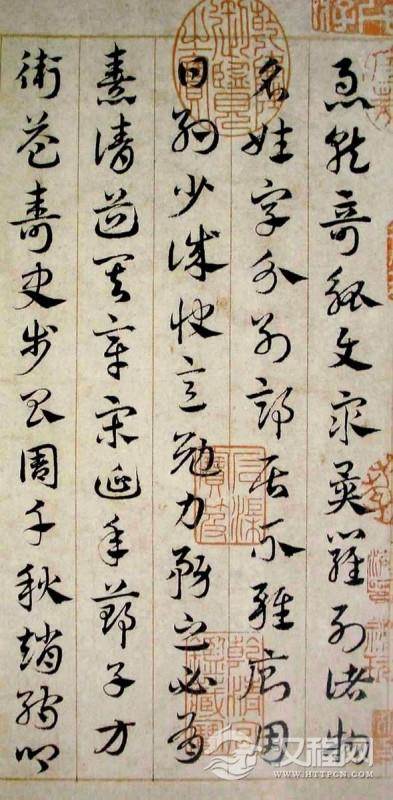 急就奇觚與衆異羅列諸物
名姓字分別部居不雜廁用
日約少誠快意勉力務之必有
憙請道其章宋延年鄭子方
衛益壽史步昌周千秋趙孺卿
汉程网
WWW.HTTPCN.COM